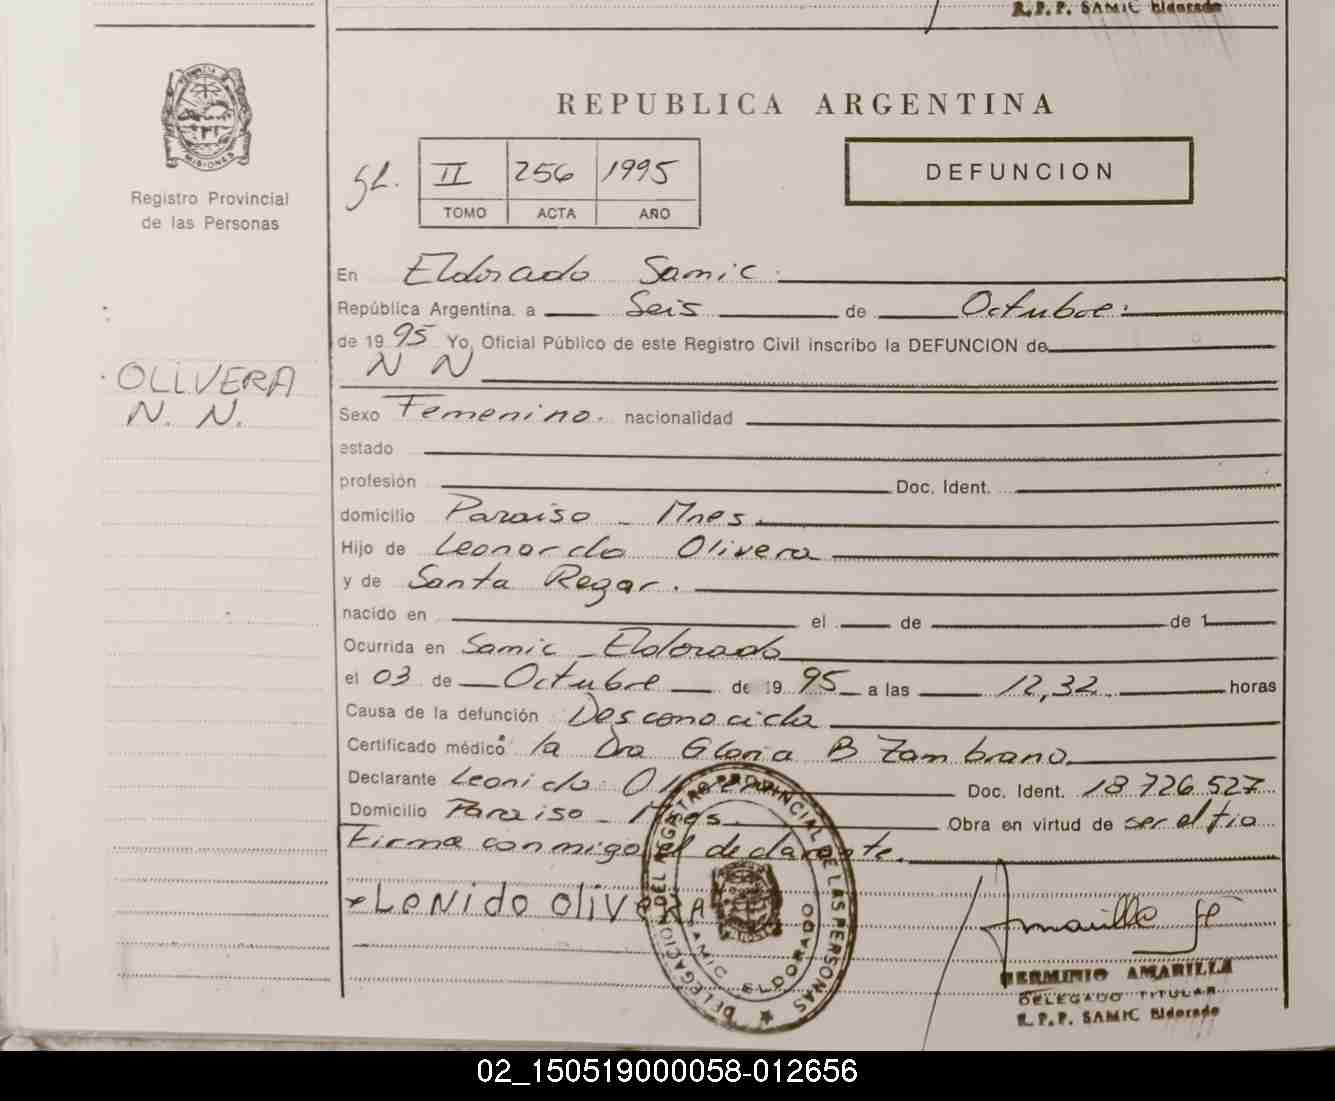 R.P.P. SAMIC Eldorado
PROVINCIA DE
MISIONES
Registro Provincial
de las Personas
REPUBLICA ARGENTINA
II 256 1995
TOMO ACTA AÑO
DEFUNCION
En Eldorado Samic.
República Argentina. a Seis de Octubre.
de 1995 Yo, Oficial Público de este Registro Civil inscribo la DEFUNCION de
N N
OLIVERA
N. N.
Sexo Femenino. nacionalidad
estado
profesión Doc. Ident.
domicilio Paraiso - Mnes.
Hijo de Leonardo Olivera
y de Santa Regar.
nacido en el de de 1
Ocurrida en Samic - Eldorado
el 03 de Octubre de 1995 a las 12,32 horas
Causa de la defunción Desconocida
Certificado médico la Dra Gloria B Zambrano
Declarante Leonido Olivera Doc. Ident. 18.726.527
Domicilio Paraiso - Mnes. Obra en virtud de ser el tio
Firma conmigo el declarante.
LeNido OliveRA
DELEGACION DEL REGISTRO PROVINCIAL DE LAS PERSONAS
SAMIC ELDORADO
Amarilla
HERMINIO AMARILLA
DELEGADO TITULAR
R.P.P. SAMIC Eldorado
02_150519000058-012656